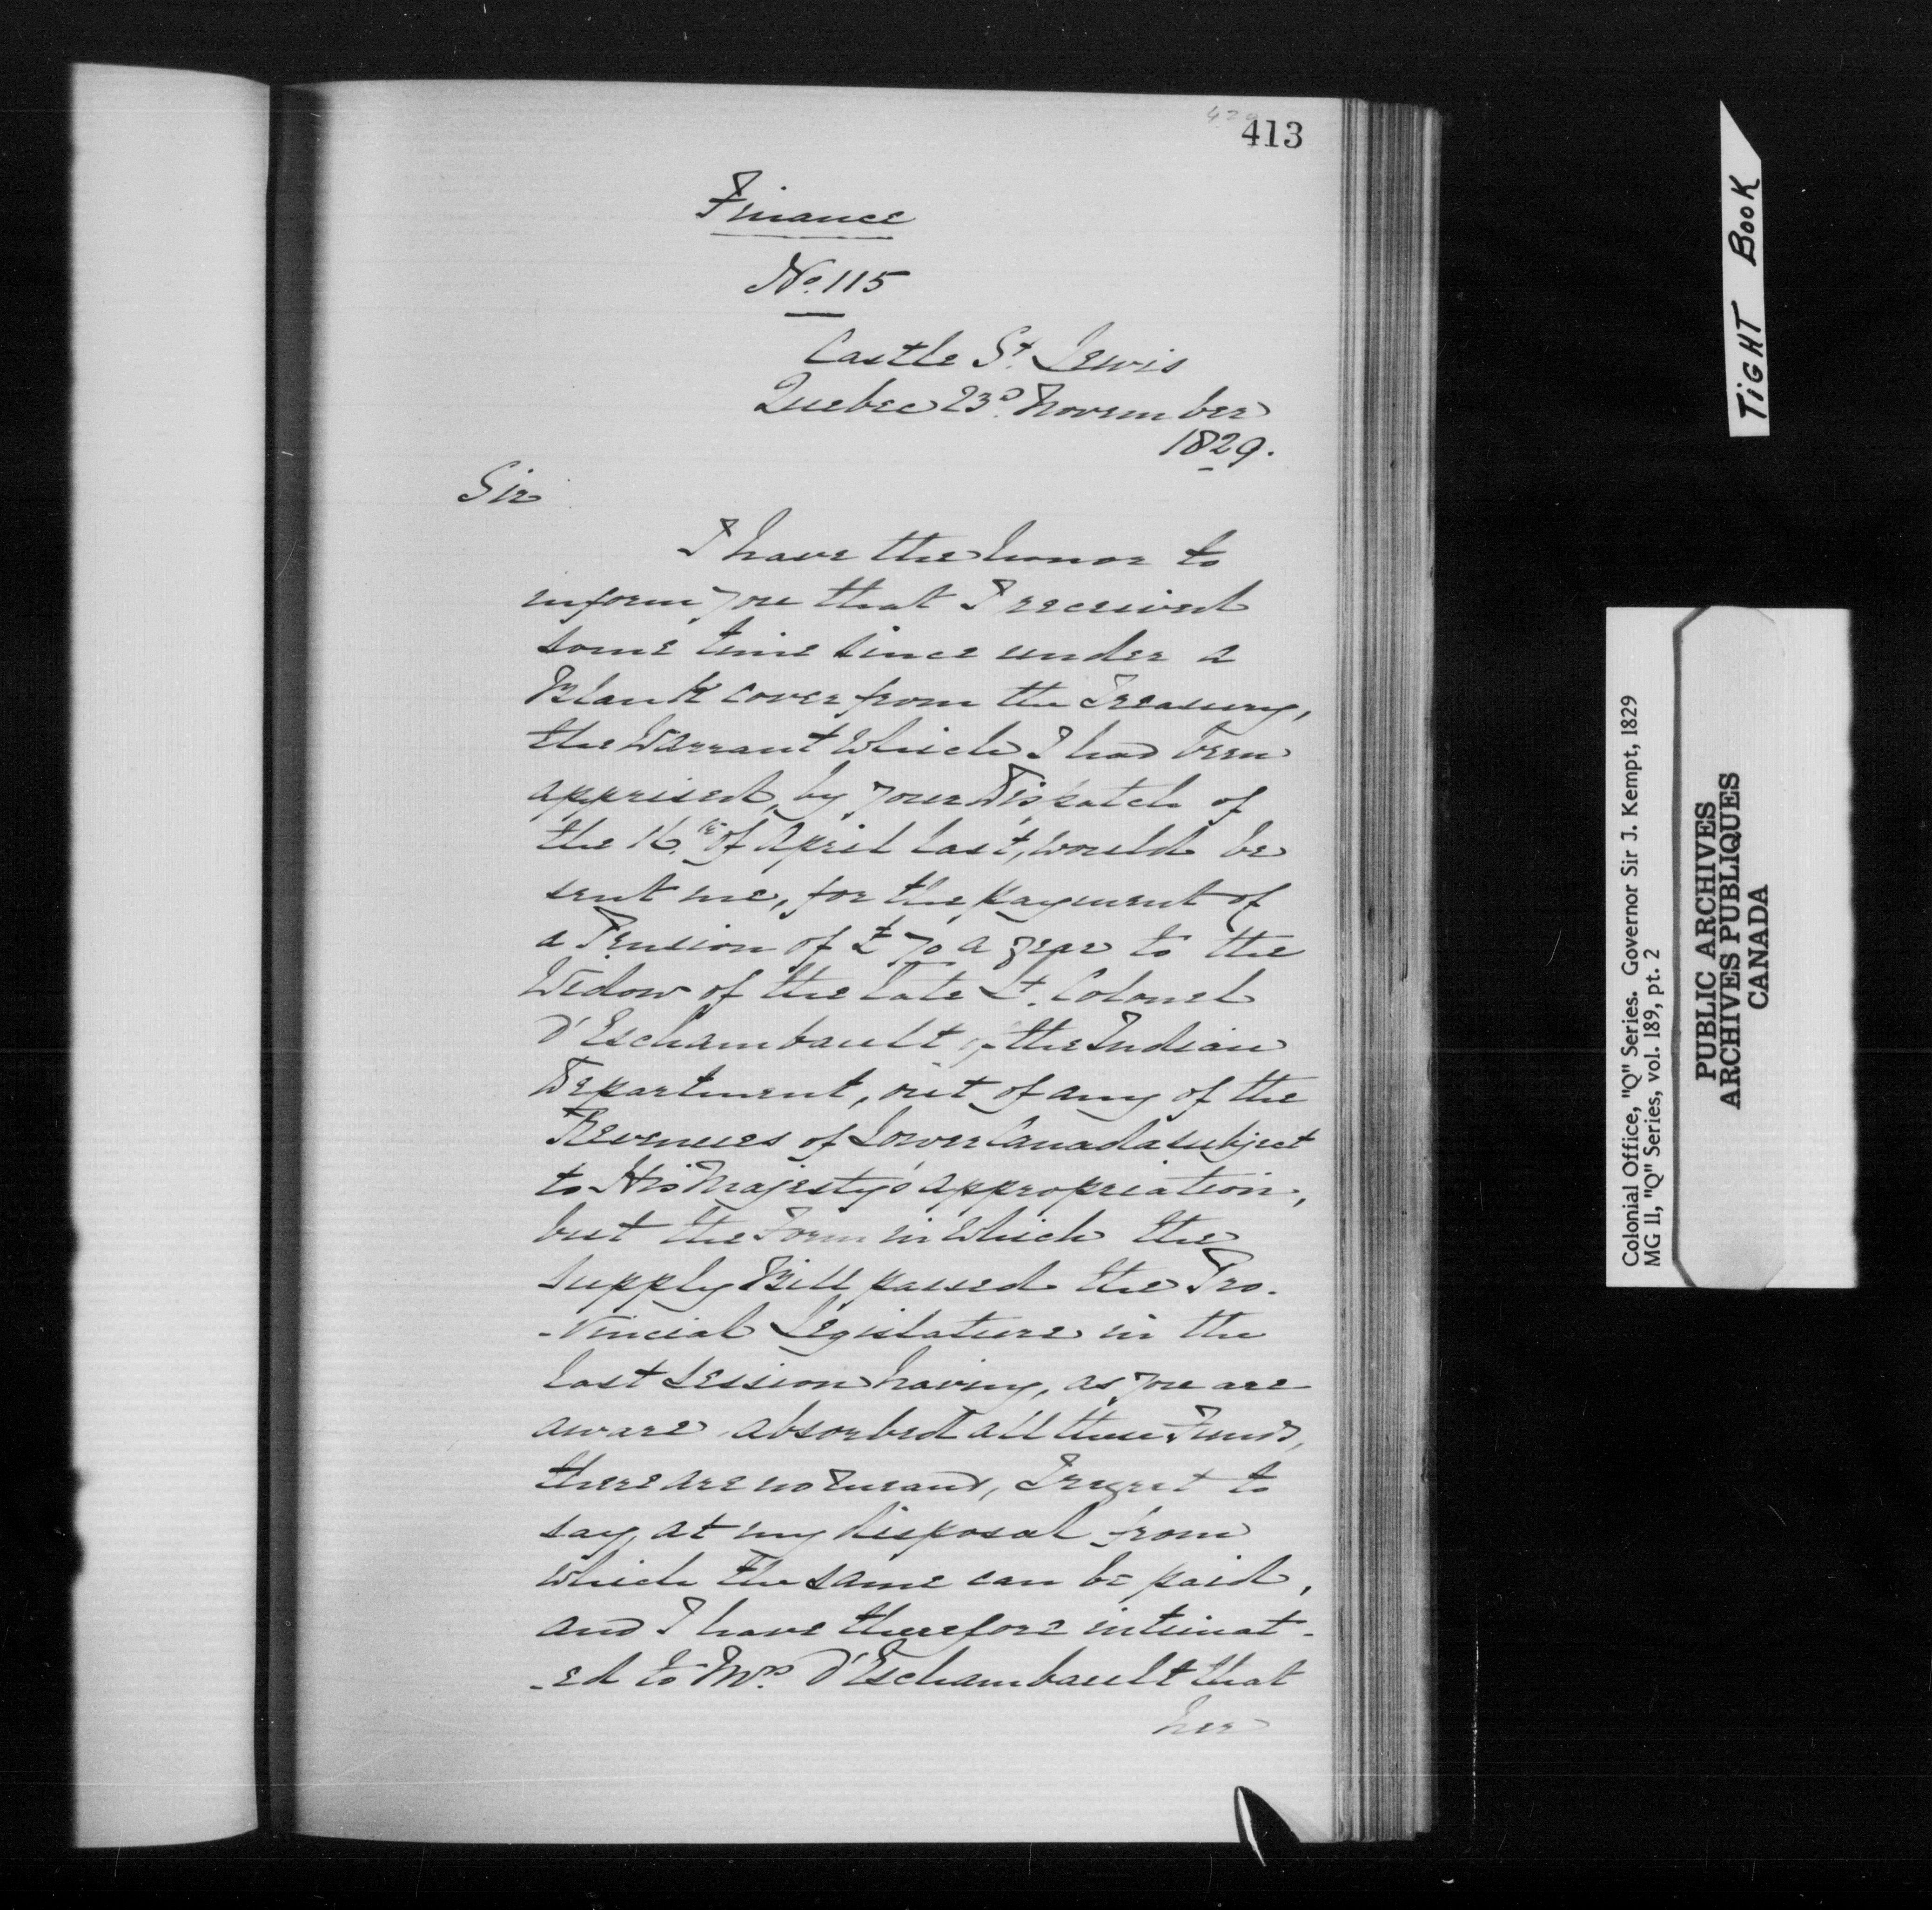 413
Finance
No. 115
Castle St. Lewis
Quebec 23d. November
1829.
Sir
I have the honor to
inform you that I received
some time since under a
Blank cover from the Treasury,
the Warrant which I had been
apprised, by your Dispatch of
the 16.th of April last, would be
sent me, for the payment of
a Pension of £70 a year to the
Widow of the late Lt. Colonel
d'Eschambault of the Indian
Department, out of any of the
Revenues of Lower Canada subject
to His Majesty's appropriation,
but the Form in which the
Supply Bill passed the Pro-
-vincial Legislature in the
last session having, as you are
aware absorbed all these Funds,
there are no means, I regret to
say, at my disposal from
which the same can be paid,
and I have therefore intimat-
-ed to Mrs. d'Eschambault that
her
TIGHT BOOK
Colonial Office, "Q" Series. Governor Sir J. Kempt, 1829
MG 11, "Q" Series, vol. 189, pt. 2
PUBLIC ARCHIVES
ARCHIVES PUBLIQUES
CANADA